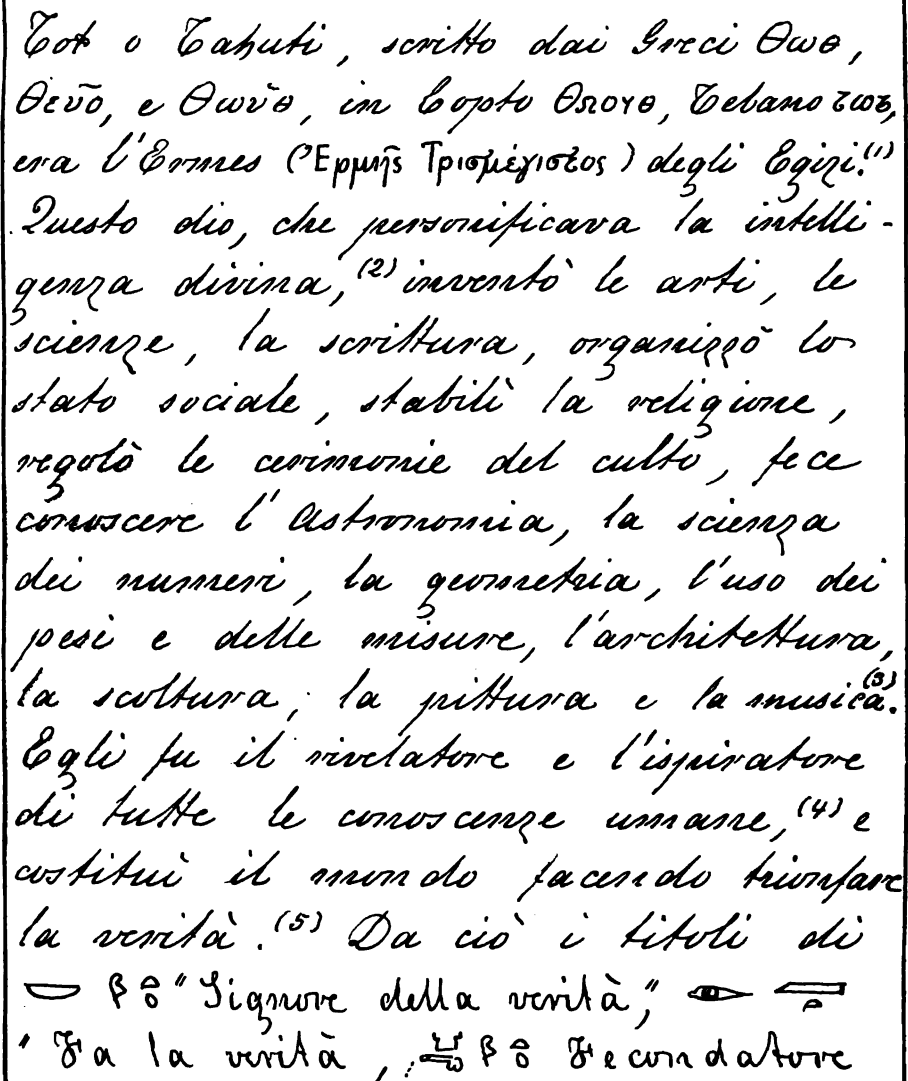 Tot o Tahuti, scritto dai Greci Θωθ,
Θευθ, e Θωυθ, in Copto Θοουθ, Tebano
era l'Ermes (Ἑρμῆς Τρισμέγιστος) degli Egizi.(1)
Questo dio, che personificava la intelli-
genza divina,(2) inventò le arti, le
scienze, la scrittura, organizzò lo
stato sociale, stabilì la religione,
regolò le cerimonie del culto, fece
conoscere l'Astronomia, la scienza
dei numeri, la geometria, l'uso dei
pesi e delle misure, l'architettura,
la scoltura, la pittura e la musica.(3)
Egli fu il rivelatore e l'ispiratore
di tutte le conoscenze umane,(4) e
costituì il mondo facendo trionfare
la verità.(5) Da ciò i titoli di
"Signore della verità,"
"Fa la verità, Fecondatore